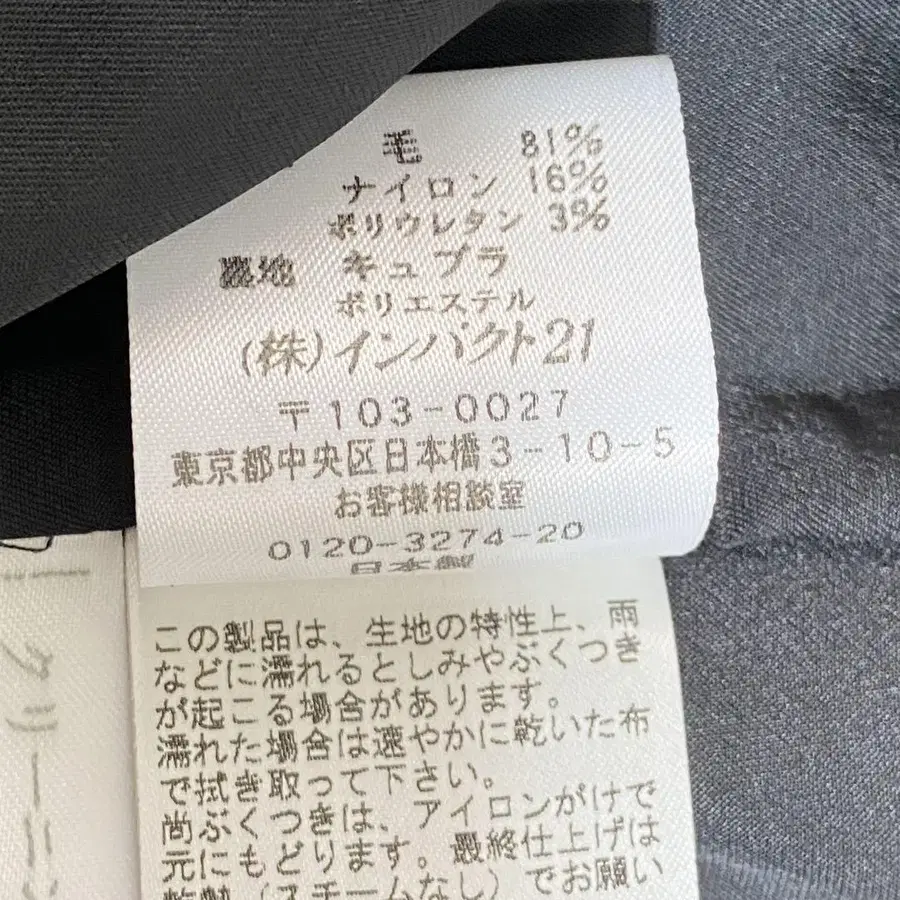 毛 81%
ナイロン 16%
ポリウレタン 3%
裏地 キュプラ
ポリエステル
(株)インパクト21
〒103-0027
東京都中央区日本橋3-10-5
お客様相談室
0120-3274-20
日本製
この製品は、生地の特性上、雨
などに濡れるとしみやぶくつき
が起こる場合があります。
濡れた場合は速やかに乾いた布
で拭き取って下さい。
尚ぶくつきは、アイロンがけで
元にもどります。最終仕上げは
(スチームなし)でお願い
クリーニ